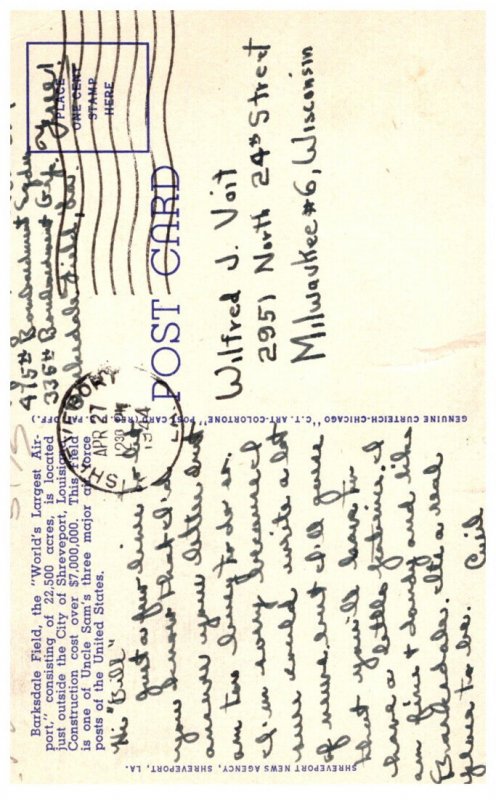 Barksdale Field, the "World's Largest Air-
port," consisting of 22,500 acres, is located
just outside the City of Shreveport, Louisiana.
Construction cost over $7,000,000. This field
is one of Uncle Sam's three major air force
posts of the United States.
Hi "Bill"
Just a few lines to let
you know that I'd
answer your letter but
am too busy to do so.
I'm sorry because I
sure could write a lot
of news but I'll guess
that you'll have to
have a little patience. I
am fine & dandy and like
Barksdale. It's a real
place to be.
SHREVEPORT NEWS AGENCY, SHREVEPORT, LA.
GENUINE CURTEICH-CHICAGO "C.T. ART-COLORTONE" POST CARD (REG. U.S. PAT. OFF.)
475th Bombardment Sqdn
335th Bombardment Grp.
Barksdale Field, La.
Free!
PLACE
ONE CENT
STAMP
HERE
SHREVEPORT
APR 27
1230 PM
1944
LA.
POST CARD
Wilfred J. Voit
2951 North 24th Street
Milwaukee #6, Wisconsin